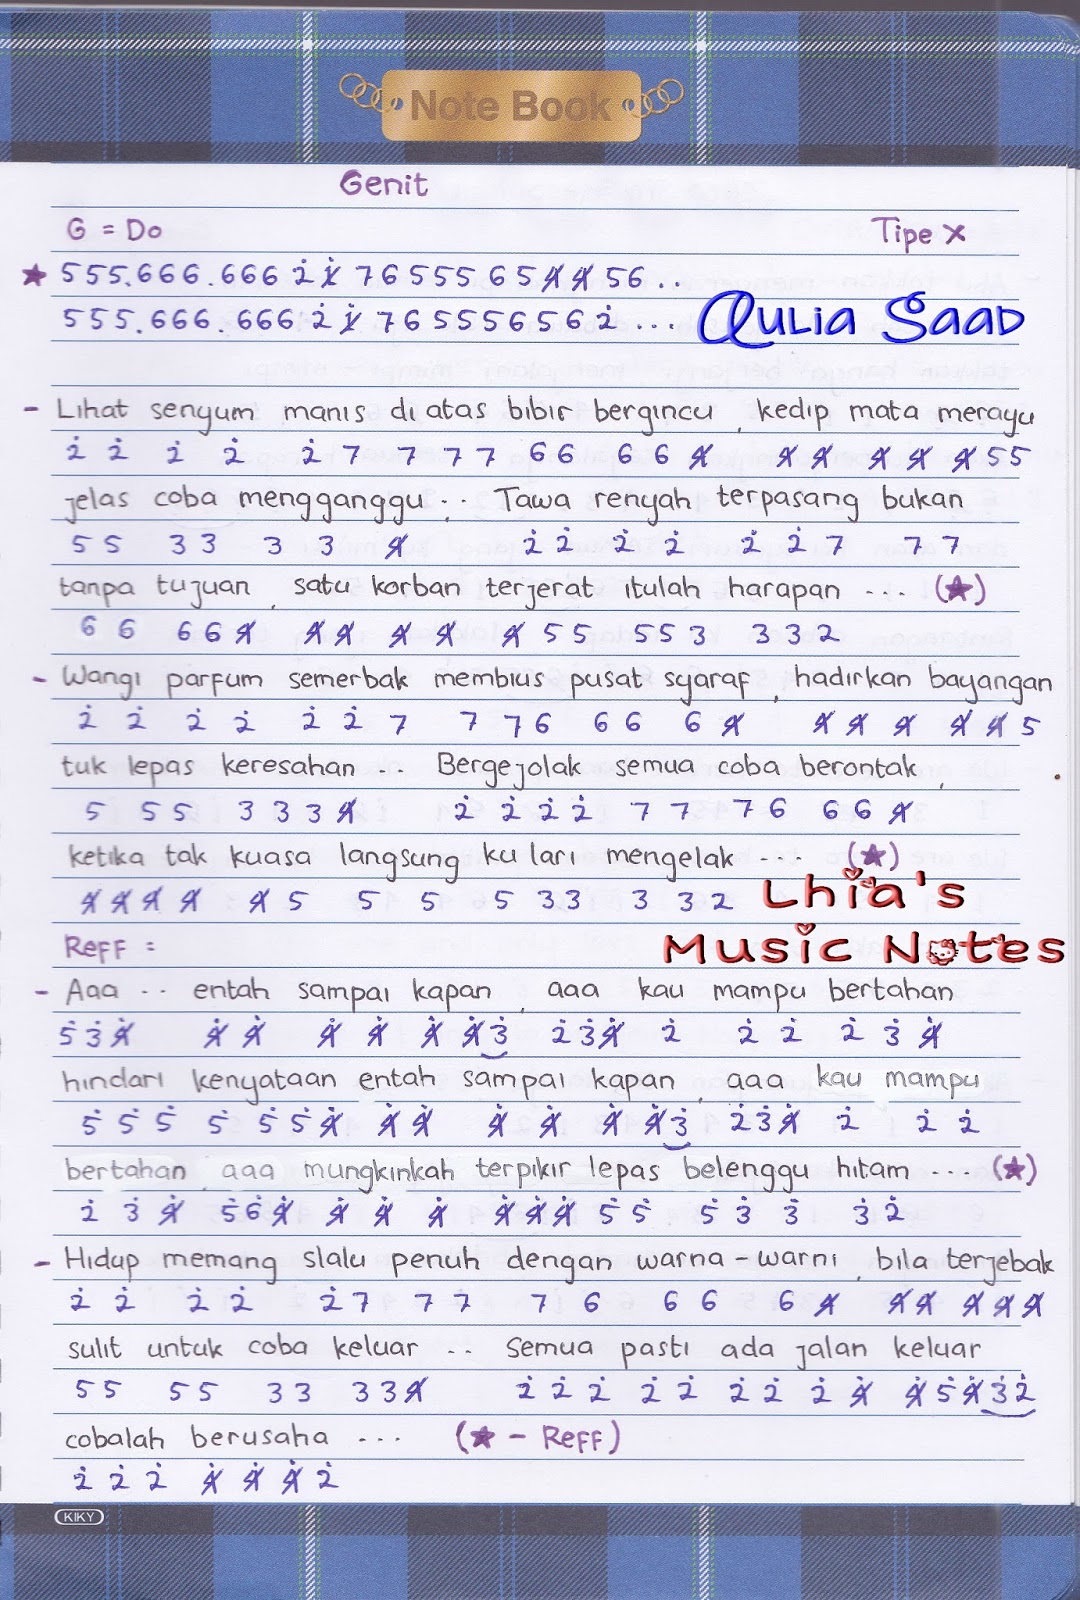 Note Book
Genit
G = Do Tipe X
★ 555.666.666 2̇ 1̸̇ 76555654̸4̸56...
555.666.666.2̇ 1̸̇ 765556562̇ ...
Qulia Saad
- Lihat senyum manis di atas bibir bergincu, kedip mata merayu
2̇ 2̇ 2̇ 2̇ 2̇ 7 7 7 7 6 6 6 6 4̸ 4̸ 4̸ 4̸ 4̸ 4̸ 5 5
jelas coba mengganggu .. Tawa renyah terpasang bukan
5 5 3 3 3 3 4̸ 2̇ 2̇ 2̇ 2̇ 2̇ 2̇ 7 7 7
tanpa tujuan, satu korban terjerat itulah harapan ... (★)
6 6 6 6 4̸ 4̸ 4̸ 4̸ 4̸ 4̸ 5 5 5 5 3 3 3 2
- Wangi parfum semerbak membius pusat syaraf, hadirkan bayangan
2̇ 2̇ 2̇ 2̇ 2̇ 2̇ 7 7 7 6 6 6 6 4̸ 4̸ 4̸ 4̸ 4̸ 4̸ 5
tuk lepas keresahan .. Bergejolak semua coba berontak,
5 5 5 3 3 3 4̸ 2̇ 2̇ 2̇ 2̇ 7 7 7 6 6 6 4̸
ketika tak kuasa langsung ku lari mengelak ... (★)
4̸ 4̸ 4̸ 4̸ 4̸ 5 5 5 5 3 3 3 3 2
Lhia's
Music Notes
Reff :
- Aaa .. entah sampai kapan, aaa kau mampu bertahan
5̇ 3̇ 4̸̇ 4̸̇ 4̸̇ 4̸̇ 4̸̇ 4̸̇ 4̸̇ 3̇ 2̇ 3̇ 4̸̇ 2̇ 2̇ 2̇ 2̇ 3̇ 4̸̇
hindari kenyataan entah sampai kapan, aaa kau mampu
5̇ 5̇ 5̇ 5̇ 5̇ 5̇ 4̸̇ 4̸̇ 4̸̇ 4̸̇ 4̸̇ 4̸̇ 4̸̇ 3̇ 2̇ 3̇ 4̸̇ 2̇ 2̇ 2̇
bertahan, aaa mungkinkah terpikir lepas belenggu hitam .... (★)
2̇ 3̇ 4̸̇ 5̇ 6̇ 4̸̇ 4̸̇ 4̸̇ 4̸̇ 4̸̇ 4̸̇ 4̸̇ 5̇ 5̇ 5̇ 3̇ 3̇ 3̇ 2̇
- Hidup memang slalu penuh dengan warna-warni, bila terjebak
2̇ 2̇ 2̇ 2̇ 2̇ 7 7 7 7 6 6 6 6 4̸ 4̸ 4̸ 4̸ 4̸ 4̸
sulit untuk coba keluar .. Semua pasti ada jalan keluar
5 5 5 5 3 3 3 3 4̸ 2̇ 2̇ 2̇ 2̇ 2̇ 2̇ 2̇ 2̇ 4̸̇ 4̸̇ 5̇ 4̸̇ 3̇ 2̇
cobalah berusaha ... (★ - Reff)
2̇ 2̇ 2̇ 4̸̇ 4̸̇ 4̸̇ 2̇
KIKY